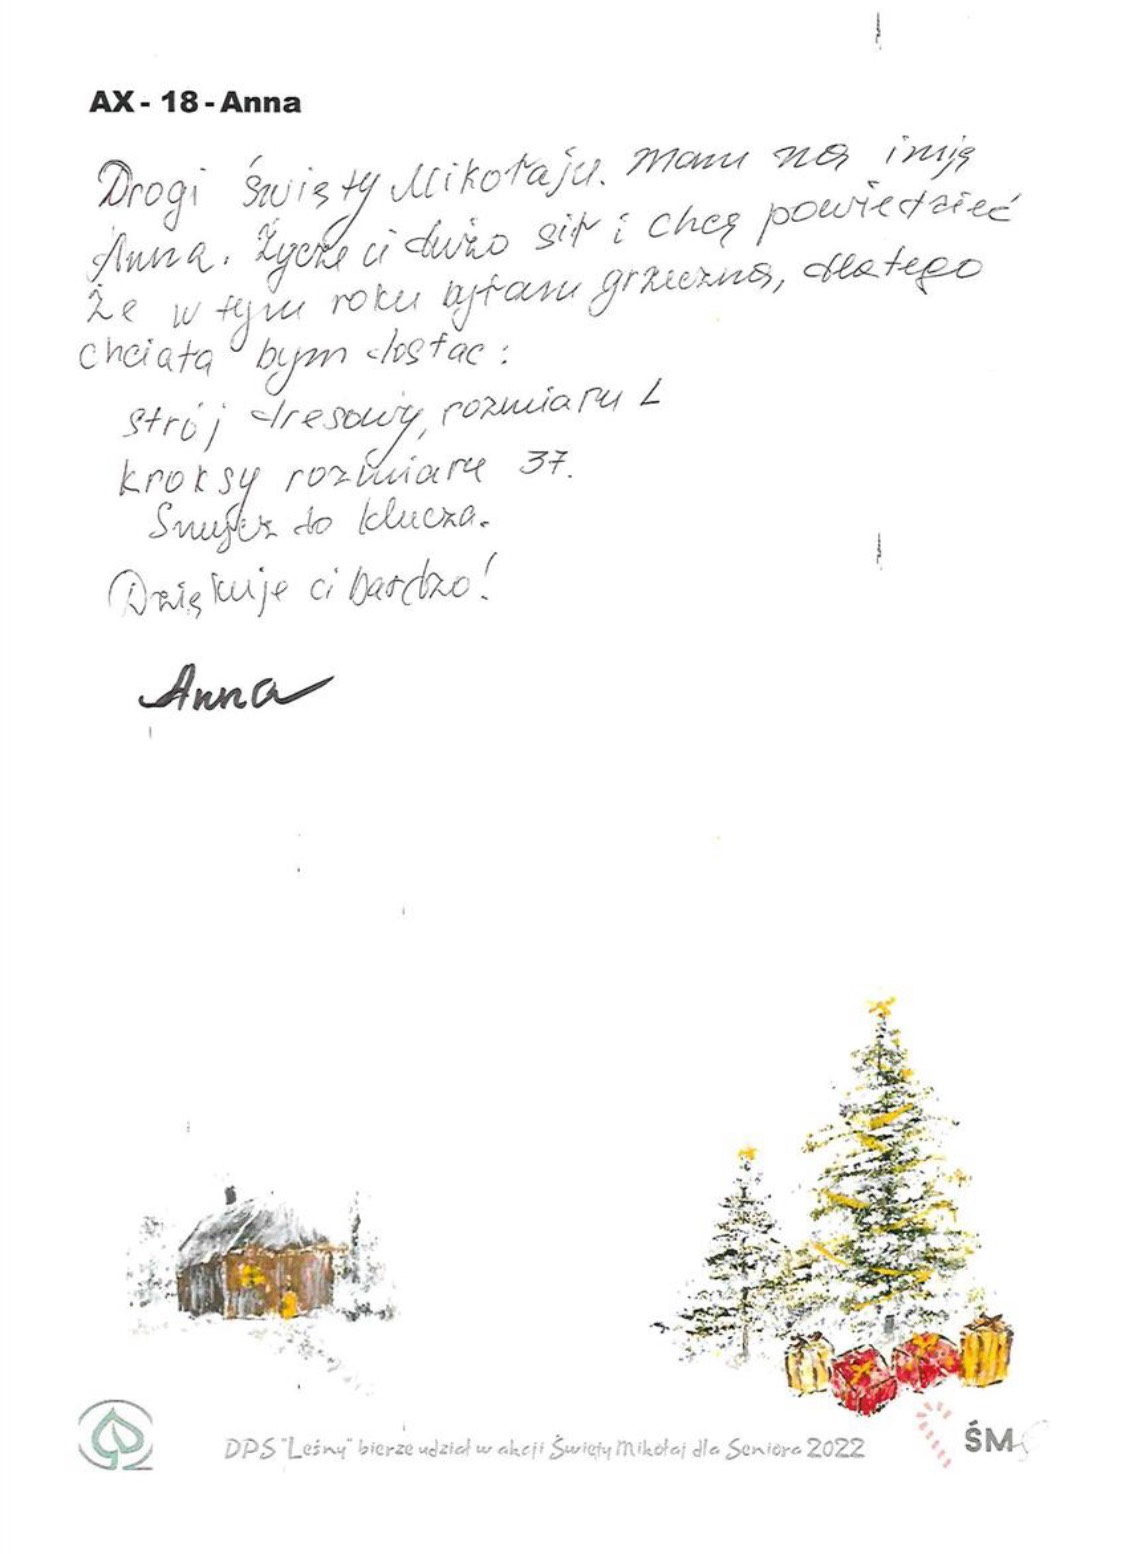 AX - 18 - Anna
Drogi święty Mikołaju. Mam na imię
Anna. Życzę ci dużo sił i chcę powiedzieć
że w tym roku byłam grzeczna, dlatego
chciała bym dostac:
strój dresowy, rozmiaru L
kroksy rozmiaru 37.
Smycz do klucza.
Dziękuje ci bardzo!
Anna
DPS "Leśny" bierze udział w akcji Święty Mikołaj dla Seniora 2022
ŚM